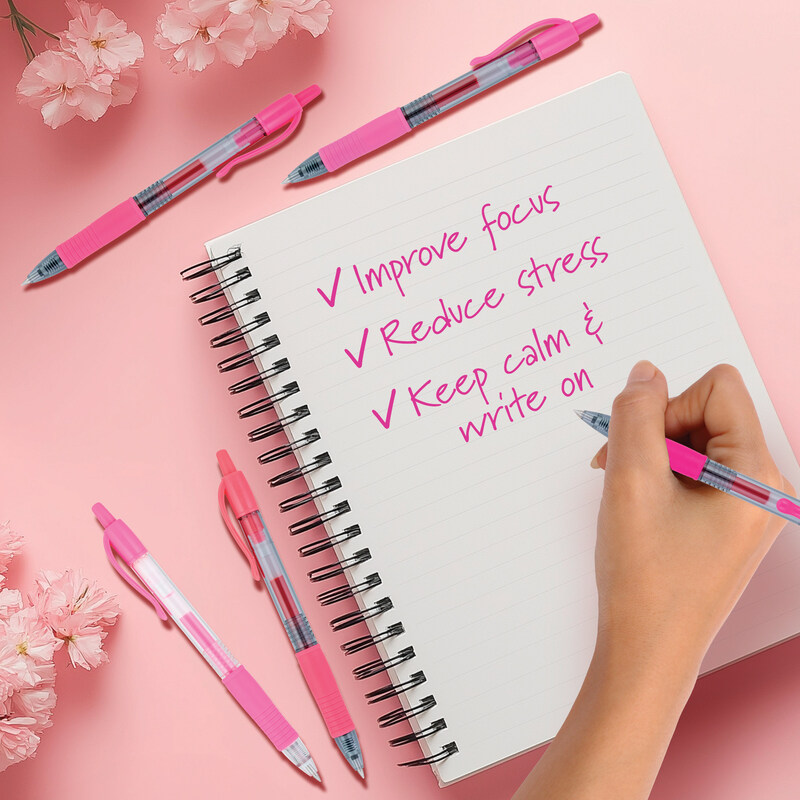 ✓ Improve focus
✓ Reduce stress
✓ Keep calm &
write on